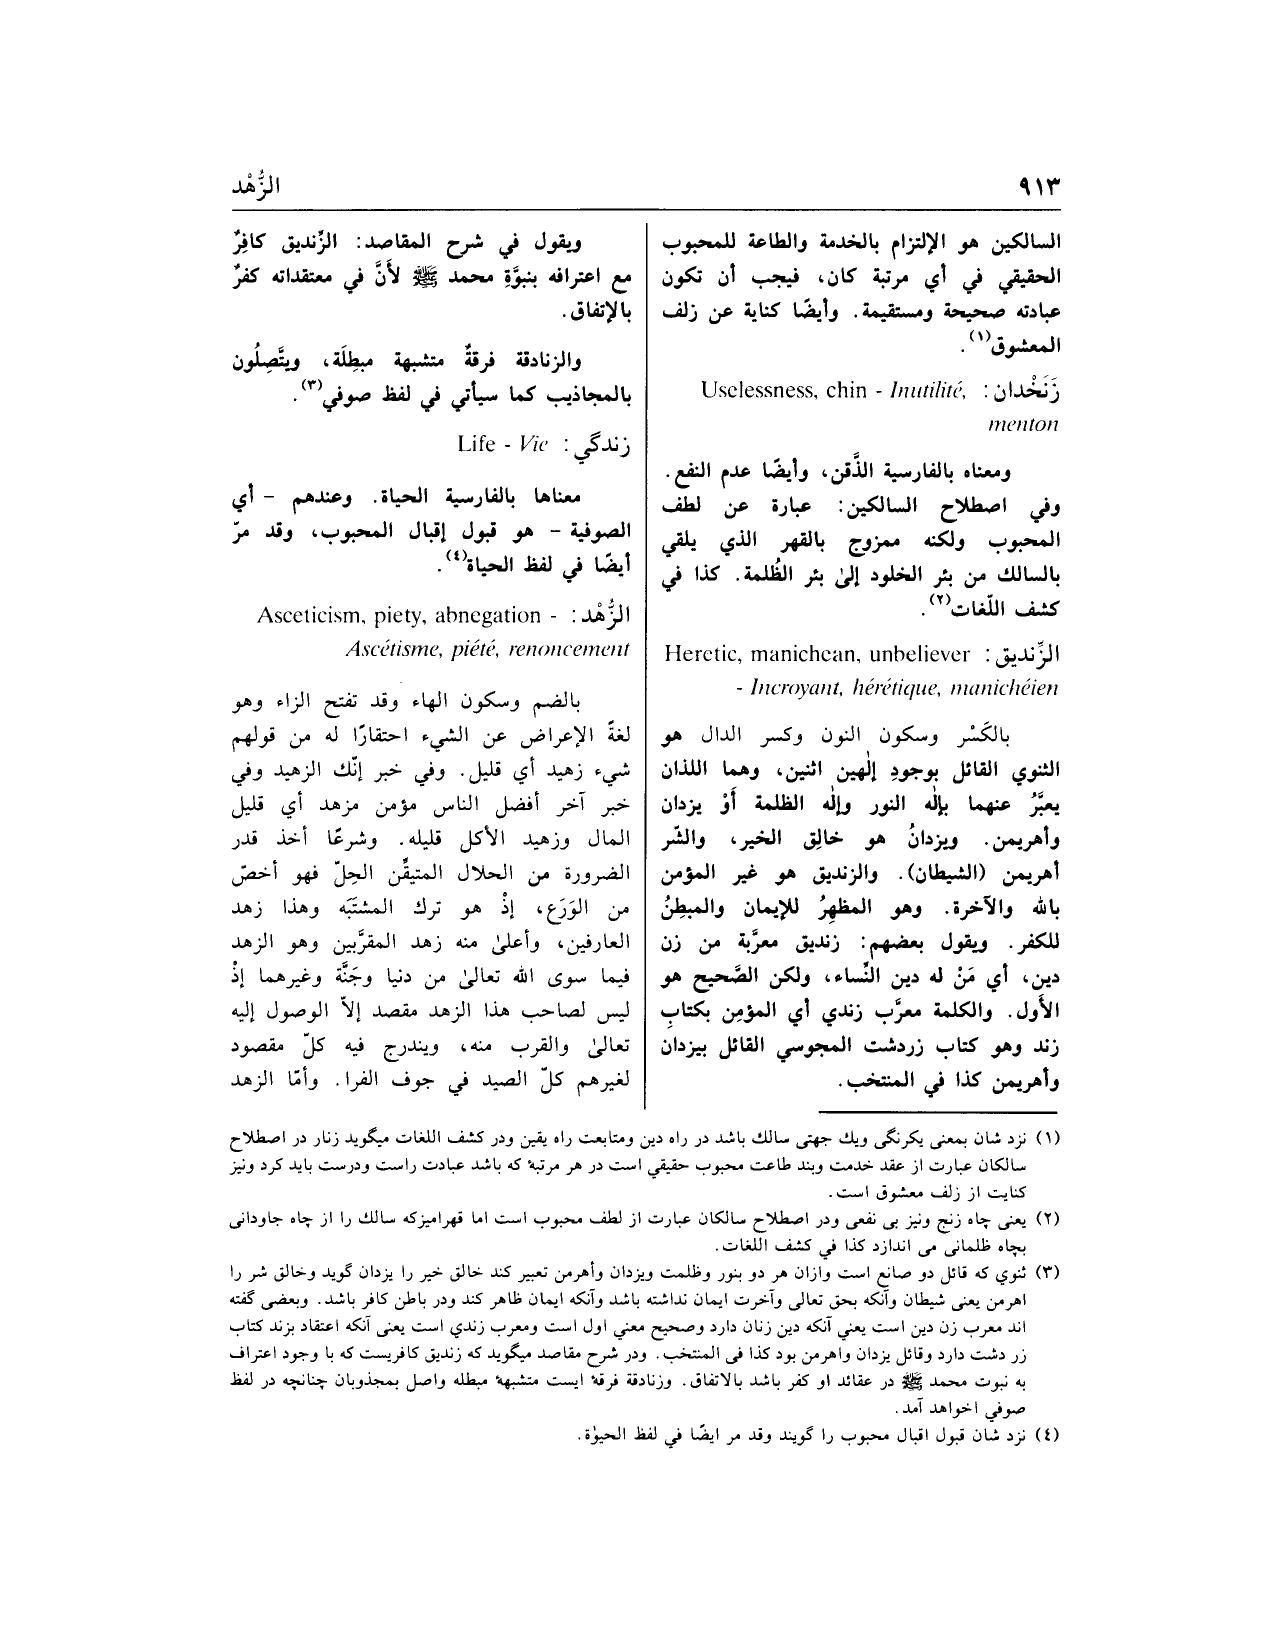 ٩١٣
الزُّهْد
السالكين هو الإلتزام بالخدمة والطاعة للمحبوب
الحقيقي في أي مرتبة كان، فيجب أن تكون
عبادته صحيحة ومستقيمة. وأيضًا كناية عن زلف
المعشوق(١).
زَنَخْدان: Uselessness, chin - Inutilité,
menton
ومعناه بالفارسية الذَّقن، وأيضًا عدم النفع.
وفي اصطلاح السالكين: عبارة عن لطف
المحبوب ولكنه ممزوج بالقهر الذي يلقي
بالسالك من بئر الخلود إلىٰ بئر الظُلمة. كذا في
كشف اللّغات(٢).
الزِّنديق: Heretic, manichean, unbeliever
- Incroyant, hérétique, manichéien
بالكَسْر وسكون النون وكسر الدال هو
الثنوي القائل بوجودِ إلٰهين اثنين، وهما اللذان
يعبَّرُ عنهما بإلٰه النور وإلٰه الظلمة أَوْ يزدان
وأهريمن. ويزدانُ هو خالِق الخير، والشّر
أهريمن (الشيطان). والزنديق هو غير المؤمن
بالله والآخرة. وهو المظهِرُ للإيمان والمبطِنُ
للكفر. ويقول بعضهم: زنديق معرَّبة من زن
دين، أي مَنْ له دين النِّساء، ولكن الصَّحيح هو
الأَول. والكلمة معرَّب زندي أي المؤمِن بكتابِ
زند وهو كتاب زردشت المجوسي القائل بيزدان
وأهريمن كذا في المنتخب.
ويقول في شرح المقاصد: الزِّنديق كافِرٌ
مع اعترافه بنبوَّةِ محمد ﷺ لأَنَّ في معتقداته كفرٌ
بالإتفاق.
والزنادقة فرقةٌ متشبهة مبطِلَة، ويتَّصِلُون
بالمجاذيب كما سيأتي في لفظ صوفي(٣).
زندگي: Life - Vie
معناها بالفارسية الحياة. وعندهم - أي
الصوفية - هو قبول إقبال المحبوب، وقد مرّ
أيضًا في لفظ الحياة(٤).
الزُّهْد: Asceticism, piety, abnegation -
Ascétisme, piété, renoncement
بالضم وسكون الهاء وقد تفتح الزاء وهو
لغةً الإعراض عن الشيء احتقارًا له من قولهم
شيء زهيد أي قليل. وفي خبر إنّك الزهيد وفي
خبر آخر أفضل الناس مؤمن مزهد أي قليل
المال وزهيد الأكل قليله. وشرعًا أخذ قدر
الضرورة من الحلال المتيقَّن الحِلّ فهو أخصّ
من الوَرَع، إذْ هو ترك المشتَبَه وهذا زهد
العارفين، وأعلىٰ منه زهد المقرَّبين وهو الزهد
فيما سوى الله تعالىٰ من دنيا وجَنَّة وغيرهما إذْ
ليس لصاحب هذا الزهد مقصد إلاّ الوصول إليه
تعالىٰ والقرب منه، ويندرج فيه كلّ مقصود
لغيرهم كلّ الصيد في جوف الفرا. وأمّا الزهد
(١) نزد شان بمعنى يكرنگى ويك جهتى سالك باشد در راه دين ومتابعت راه يقين ودر كشف اللغات ميگويد زنار در اصطلاح
سالكان عبارت از عقد خدمت وبند طاعت محبوب حقيقي است در هر مرتبۀ كه باشد عبادت راست ودرست بايد كرد ونيز
كنايت از زلف معشوق است.
(٢) يعنى چاه زنج ونيز بى نفعى ودر اصطلاح سالكان عبارت از لطف محبوب است اما قهراميزكه سالك را از چاه جاودانى
بچاه ظلمانى مى اندازد كذا في كشف اللغات.
(٣) ثنوي كه قائل دو صانع است وازان هر دو بنور وظلمت ويزدان وأهرمن تعبير كند خالق خير را يزدان گويد وخالق شر را
اهرمن يعنى شيطان وآنكه بحق تعالى وآخرت ايمان نداشته باشد وآنكه ايمان ظاهر كند ودر باطن كافر باشد. وبعضى گفته
اند معرب زن دين است يعني آنكه دين زنان دارد وصحيح معني اول است ومعرب زندي است يعنى آنكه اعتقاد بزند كتاب
زر دشت دارد وقائل يزدان واهرمن بود كذا فى المنتخب. ودر شرح مقاصد ميگويد كه زنديق كافريست كه با وجود اعتراف
به نبوت محمد ﷺ در عقائد او كفر باشد بالاتفاق. وزنادقة فرقۀ ايست متشبهۀ مبطله واصل بمجذوبان چنانچه در لفظ
صوفي اخواهد آمد.
(٤) نزد شان قبول اقبال محبوب را گويند وقد مر ايضًا في لفظ الحيوٰة.